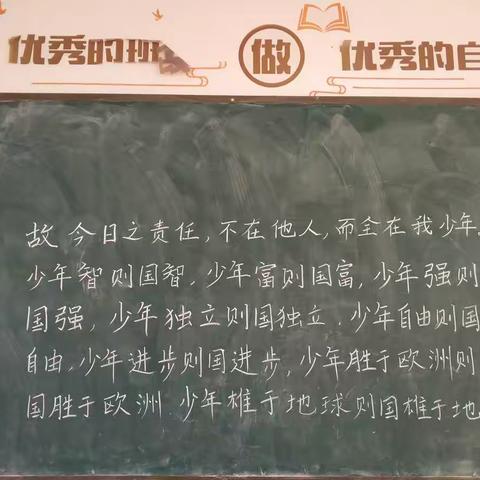 优秀的班
做
优秀的自
故今日之责任,不在他人,而全在我少年.
少年智则国智.少年富则国富,少年强则
国强,少年独立则国独立.少年自由则国
自由.少年进步则国进步,少年胜于欧洲则
国胜于欧洲.少年雄于地球则国雄于地